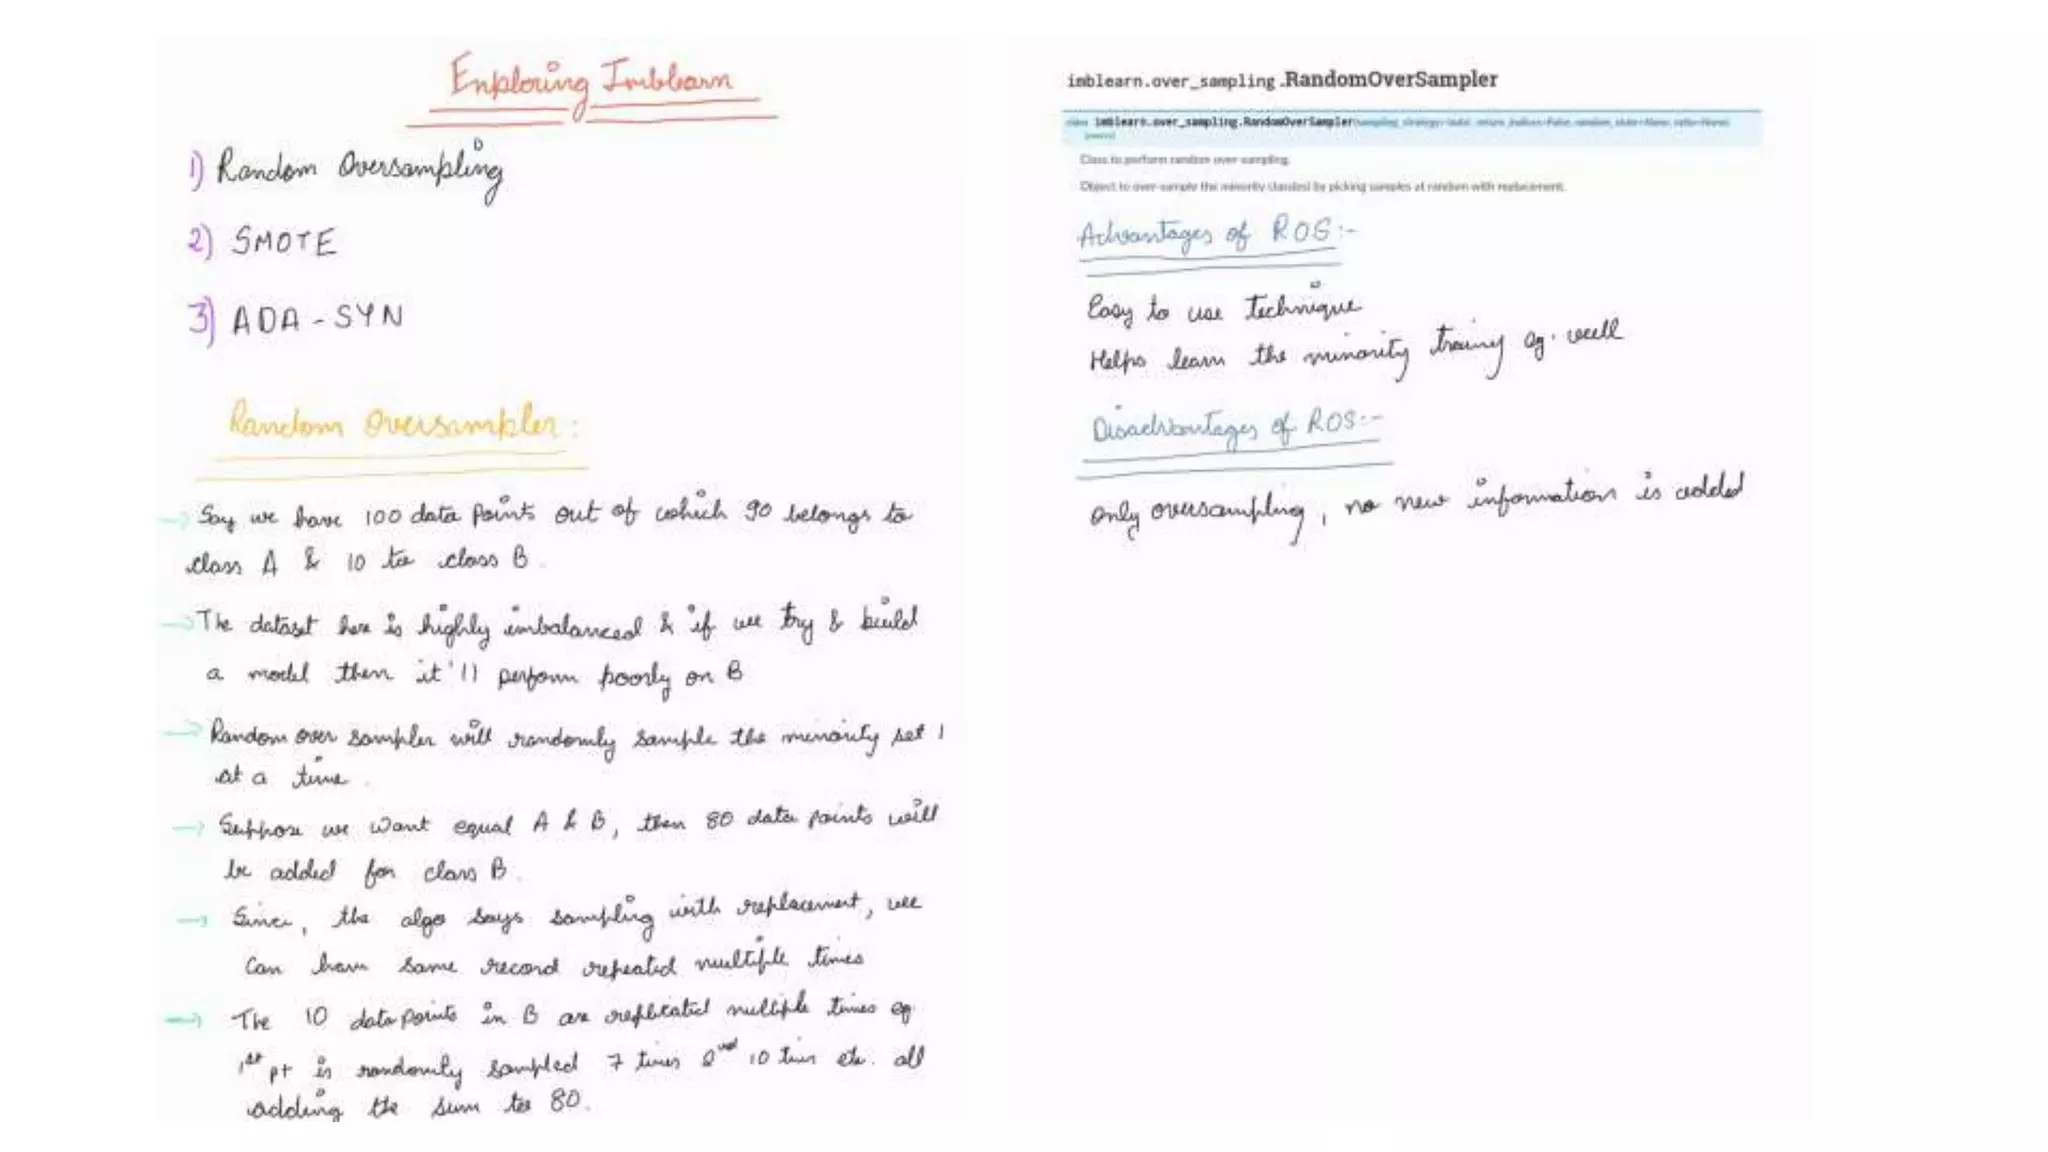 Exploring Imblearn
1) Random Oversampling
2) SMOTE
3) ADA-SYN
Random Oversampler:
→ Say we have 100 data points out of which 90 belongs to
class A & 10 to class B.
→ The dataset here is highly imbalanced & if we try & build
a model then it'll perform poorly on B
→ Random over sampler will randomly sample the minority set 1
at a time.
→ Suppose we want equal A & B, then 80 data points will
be added for class B.
→ Since, the algo says sampling with replacement, we
can have same record repeated multiple times
→ The 10 data points in B are replicated multiple times eg.
1st pt is randomly sampled 7 times 2nd 10 times etc. all
adding the sum to 80.
imblearn.over_sampling.RandomOverSampler
class imblearn.over_sampling.RandomOverSampler(sampling_strategy='auto', return_indices=False, random_state=None, ratio=None)
[source]
Class to perform random over-sampling.
Object to over-sample the minority class(es) by picking samples at random with replacement.
Advantages of ROS:-
Easy to use technique
Helps learn the minority training eg. well
Disadvantages of ROS:-
Only oversampling, no new information is added